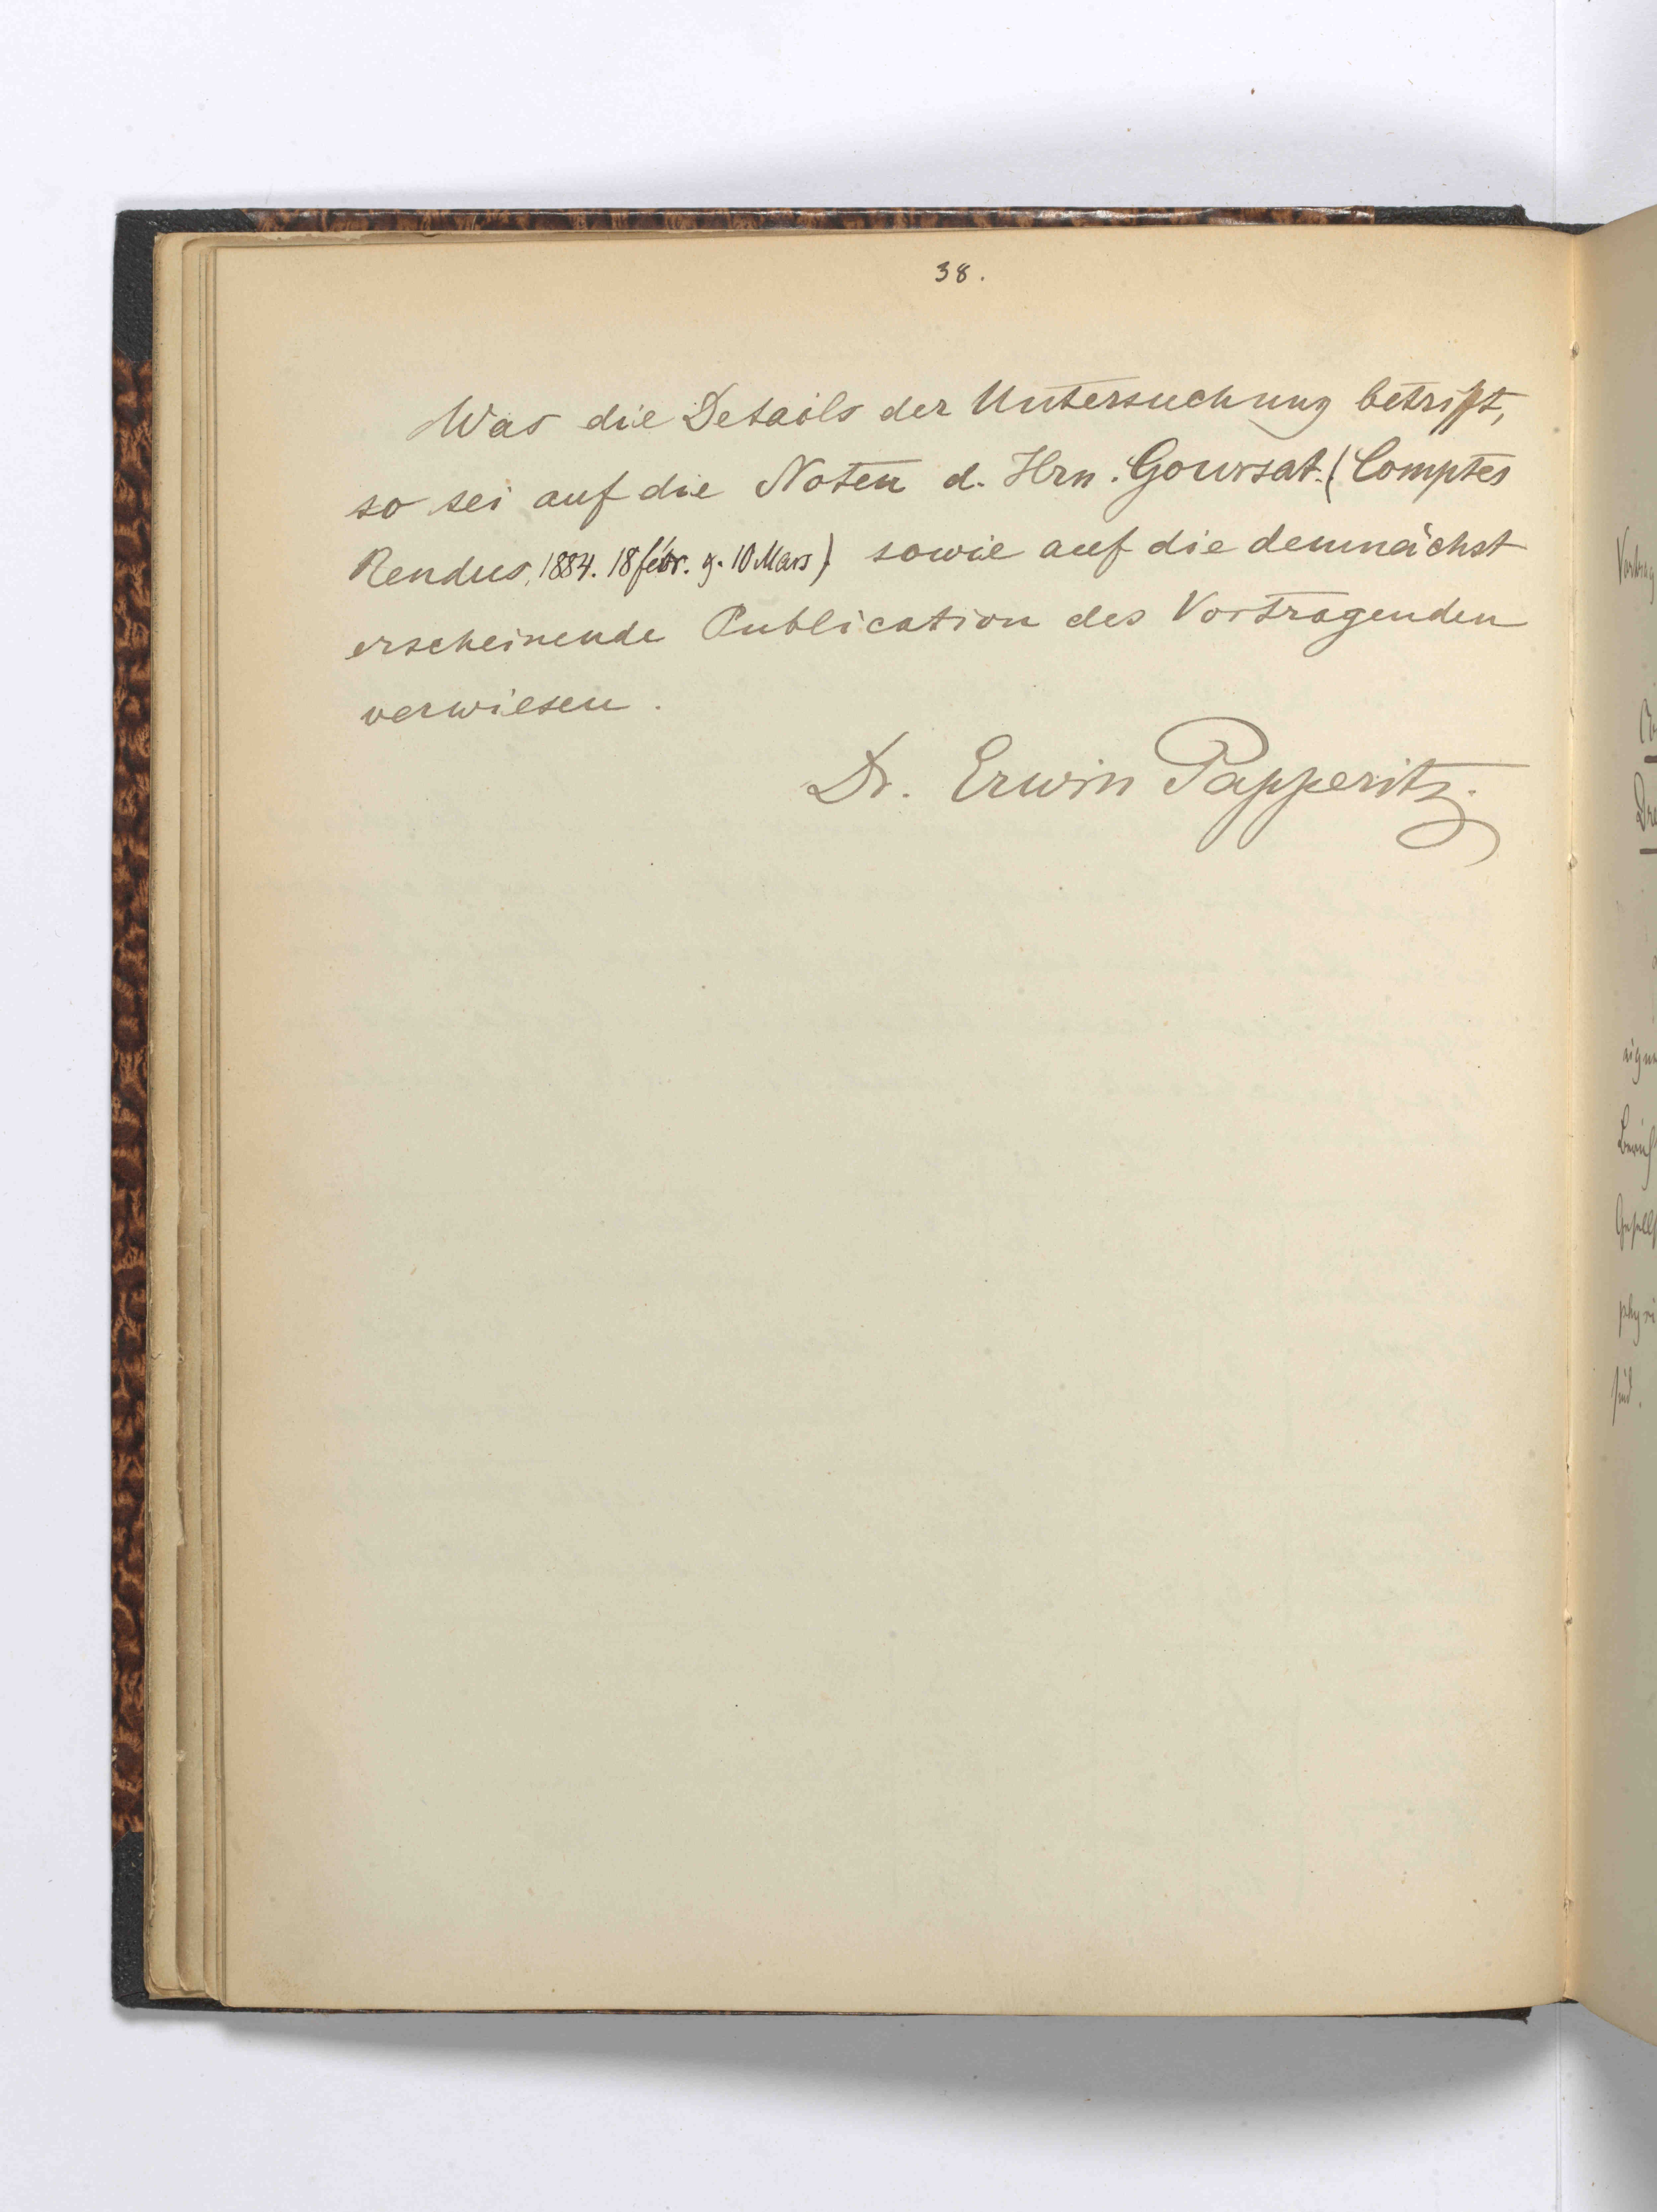 38.
Was die Details der Untersuchung betrifft,
so sei auf die Noten d. Hrn. Goursat (Comptes
Rendus, 1884. 18 febr. g. 10 Mars) sowie auf die demnächst
erscheinende Publication des Vortragenden
verwiesen.
Dr. Erwin Papperitz.